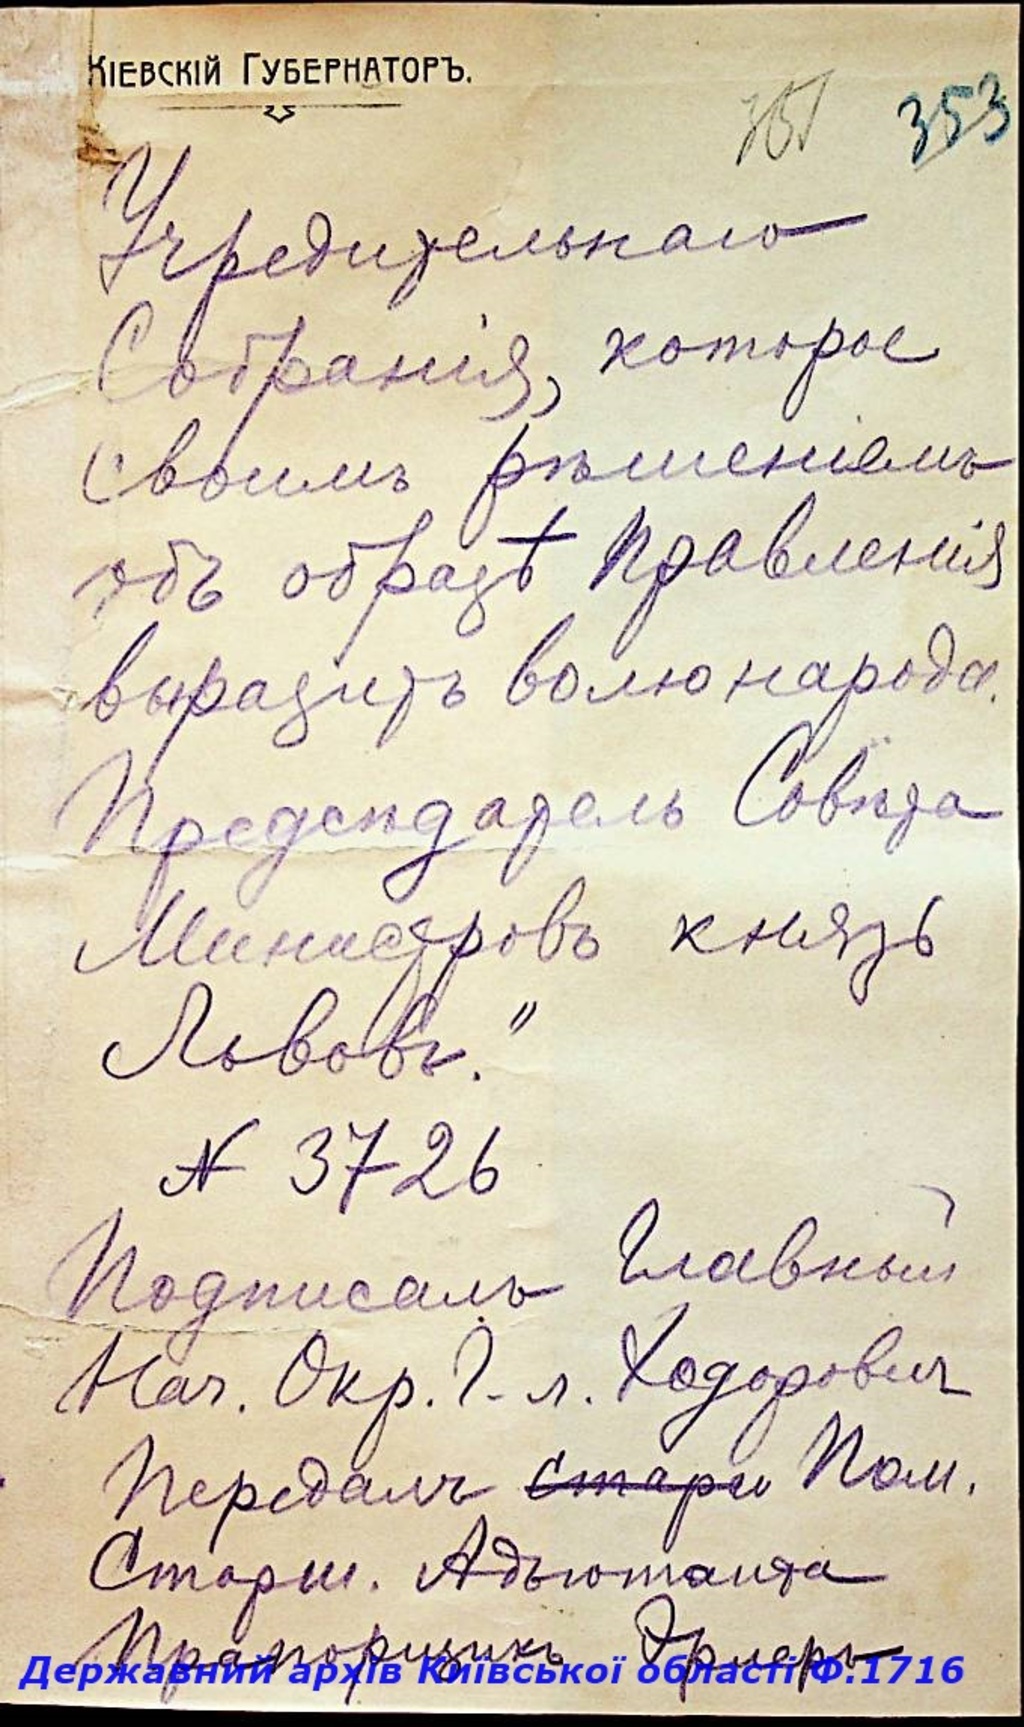 Кіевскій Губернаторъ.
351 353
Учредительнаго
Собранія, которое
своимъ рѣшеніемъ
объ образѣ Правленія
выразитъ волю народа.
Предсѣдатель Совѣта
Министровъ князь
Львовъ."
N 3726
Подписалъ Главный
Нач. Окр. Г-л. Ходорович
Передалъ Старш Пом.
Старш. Адъютанта
Прапорщикъ
Державний архів Київської області Ф.1716